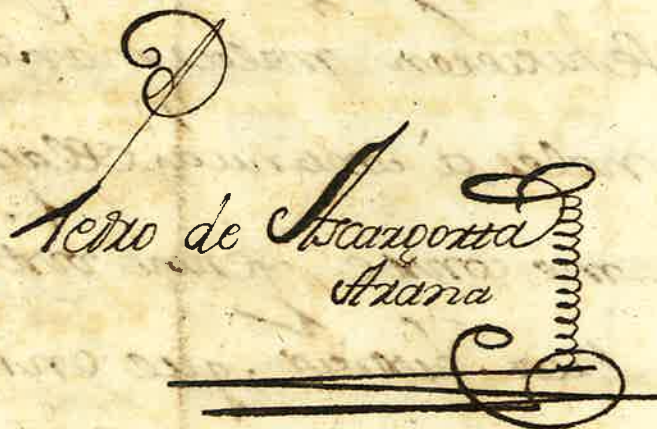 Pedro de Ascargorta
Arana